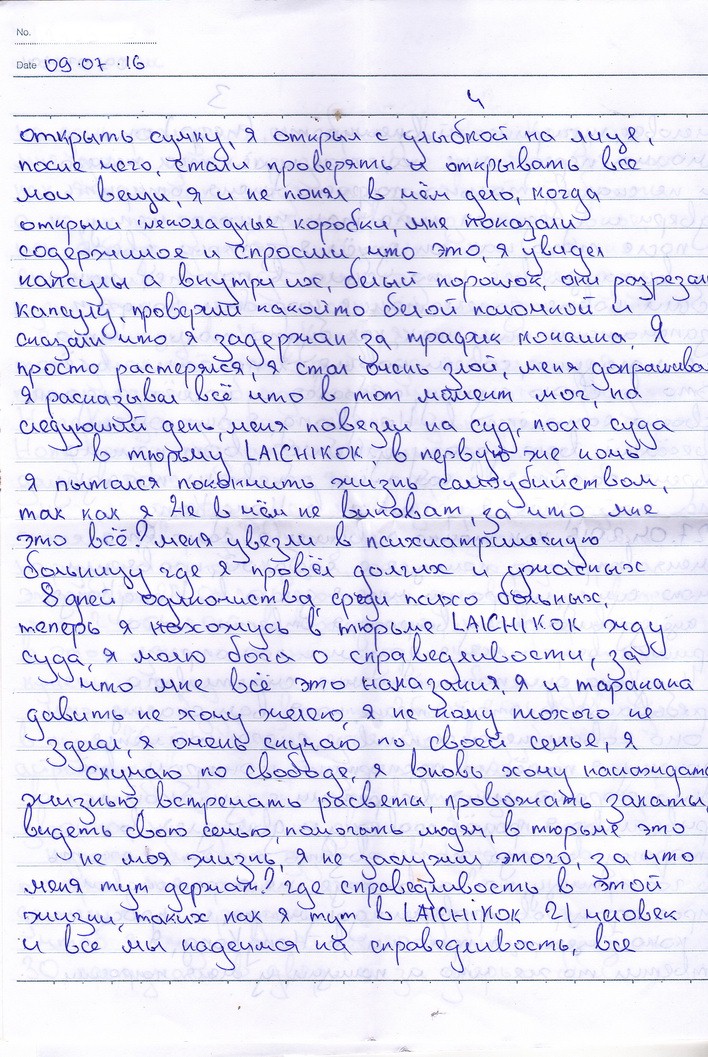 No.
Date 09.07.16
4
открыть сумку, я открыл с улыбкой на лице,
после чего, стали проверять и открывать все
мои вещи, я и не понял в чём дело, когда
открыли шеколадные коробки, мне показали
содержимое и спросили что это, я увидел
капсулы а внутри их, белый порошок, они разрезали
капсулу, проверили какойто белой поломкой и
сказали что я задержан за трафик кокаина. Я
просто растерялся, я стал очень злой, меня допрашива
Я расказывал всё что в тот момент мог, на
следующий день, меня повезли на суд, после суда
в тюрьму LAICHIKOK, в первую же ночь
я пытался покончить жизнь самоубийством,
так как я не в чём не виноват, за что мне
это всё? меня увезли в психиатрическую
больницу где я провёл долгих и ужасных
8 дней одиночиства среди психо больных,
теперь я нахожусь в тюрьме LAICHIKOK жду
суда, я молю бога о справедливости, за
что мне всё это наказания, я и таракана
давить не хочу нечего, я не кому плохого не
зделал, я очень скучаю по своей семье, я
скучаю по свободе, я вновь хочу наслождатся
жизнью встречать расветы, провожать закаты,
видеть свою семью, помогать людям, в тюрьме это
не моя жизнь, я не заслужил этого, за что
меня тут держат? где справедливость в этой
жизни, таких как я тут в LAICHIKOK 21 человек
и все мы надеимся на справедливость, все